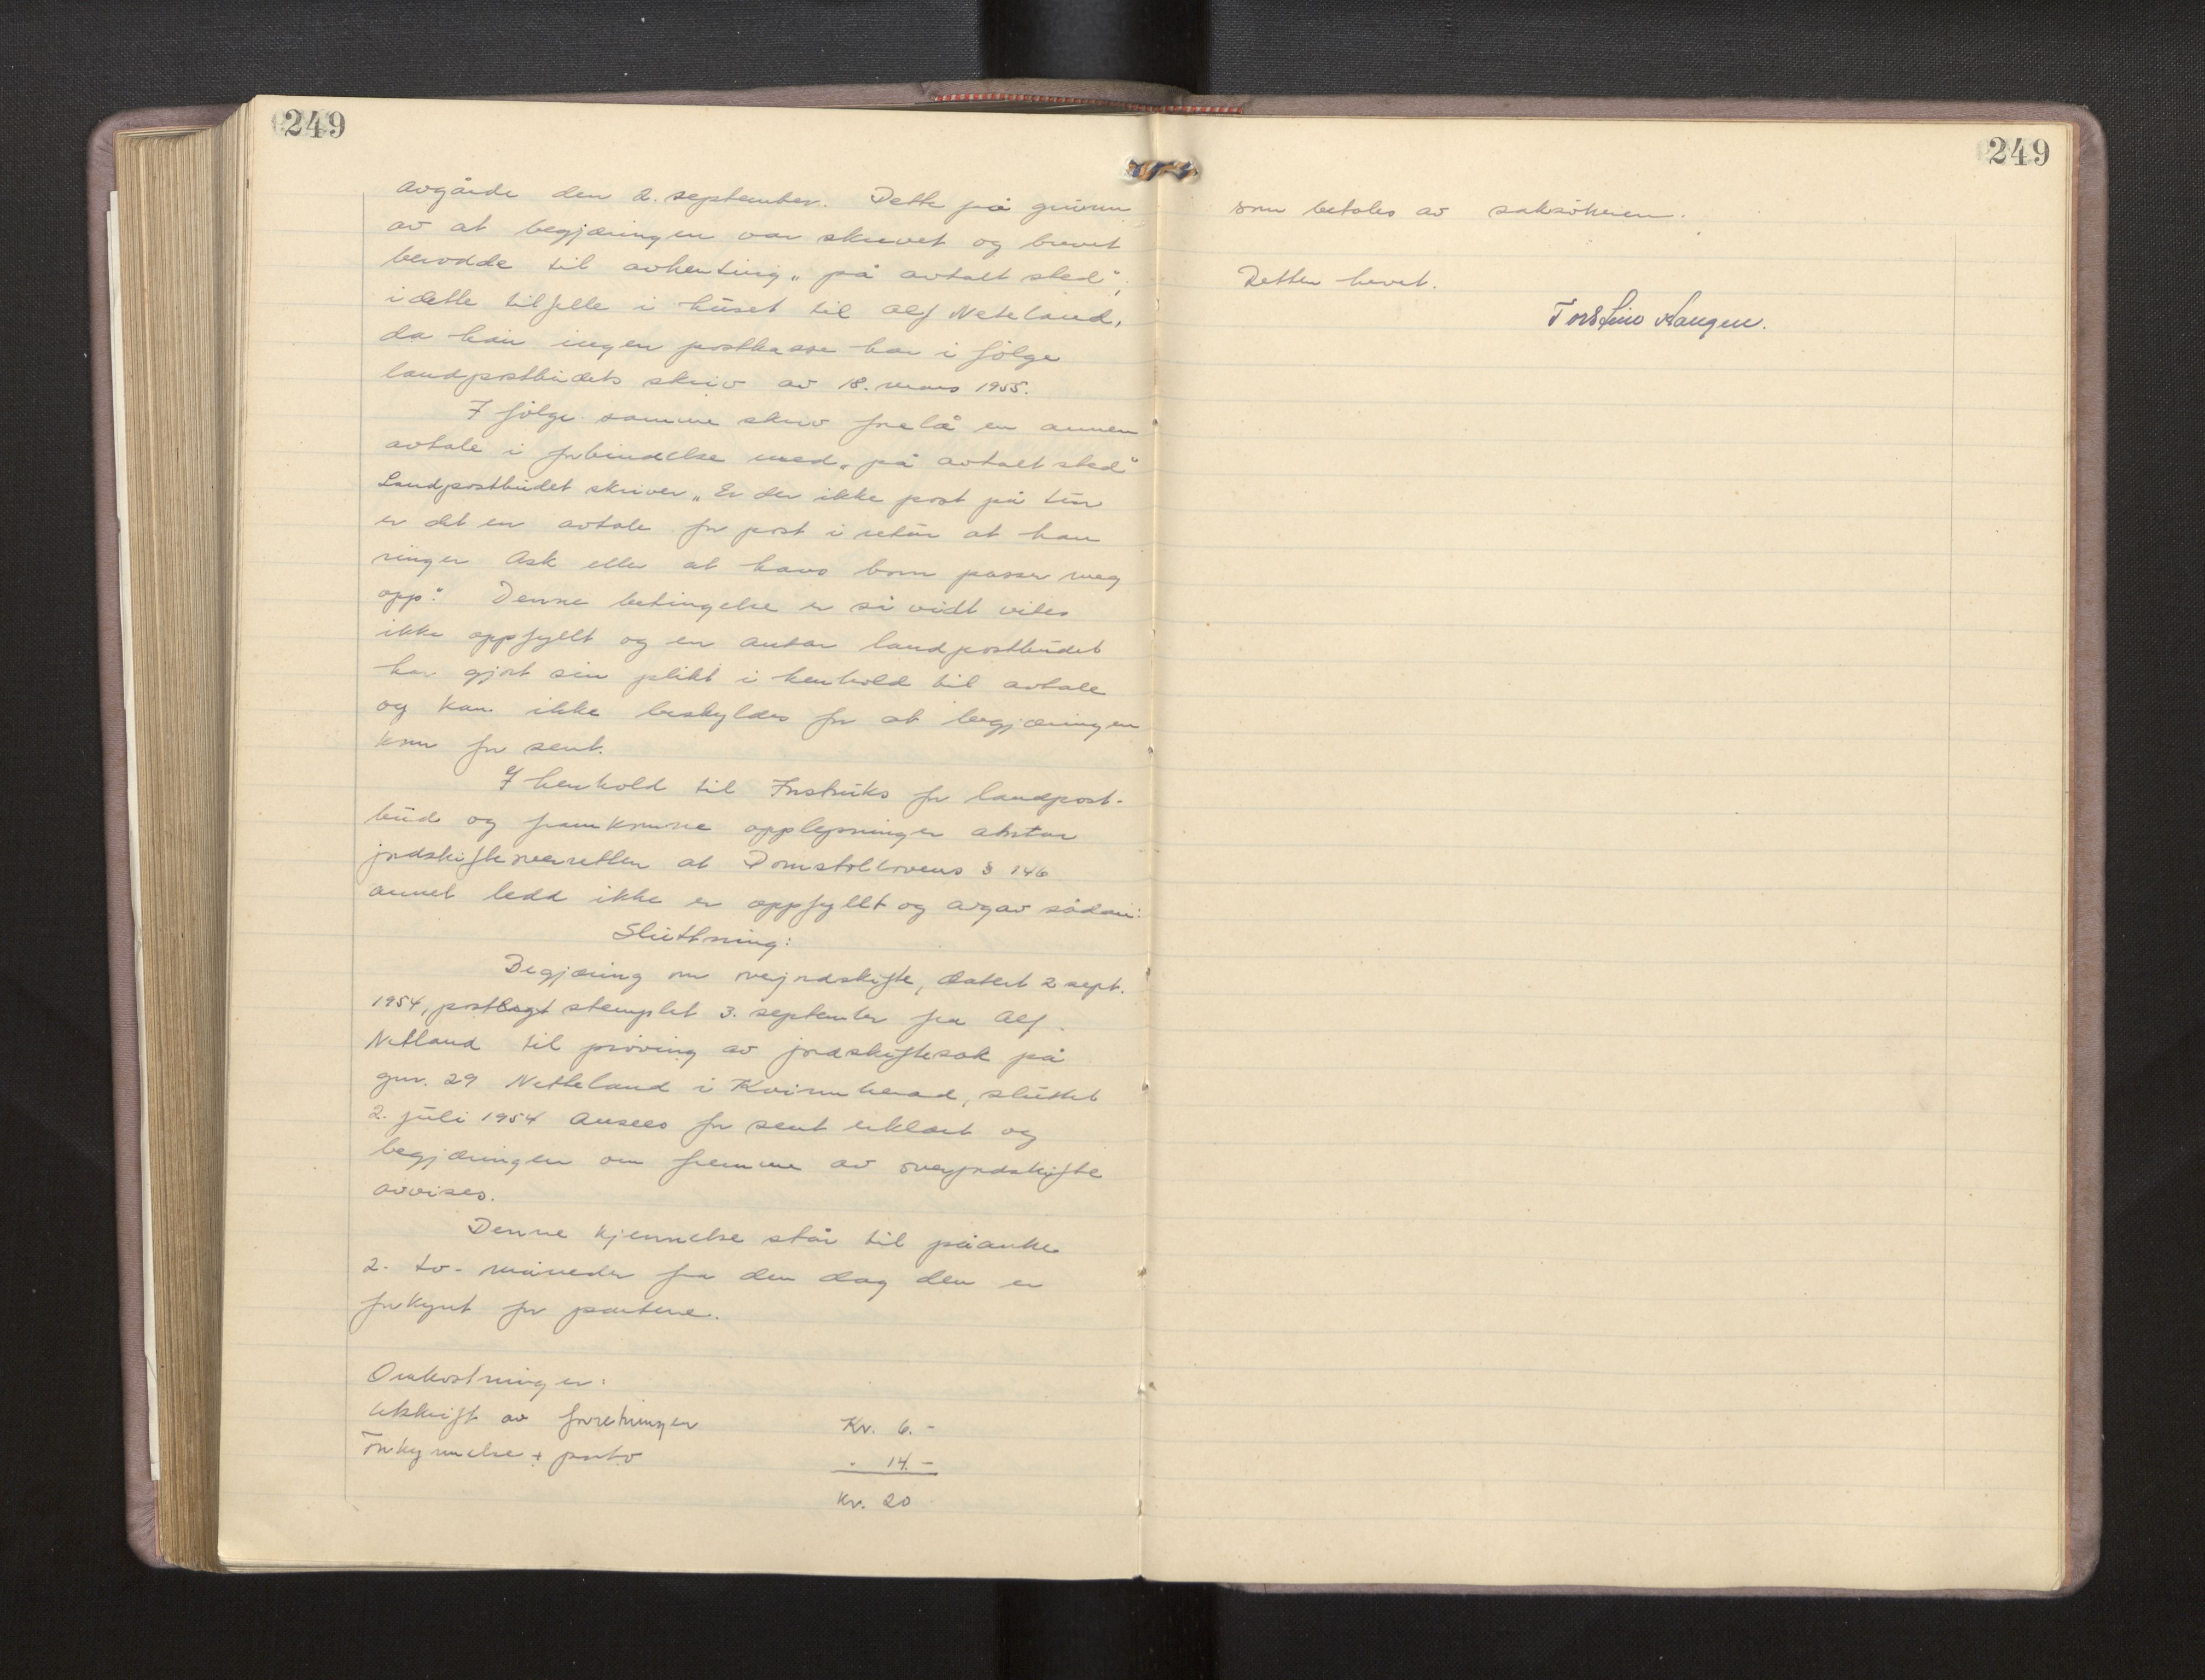 249
avgårde den 2. september. Dette på grunn
av at begjæringen var skrevet og brevet
berodde til avhenting „på avtalt sted“,
i dette tilfelle i huset til Alf Neteland,
da han ingen postkasse har i følge
landpostbudets skriv av 18. mars 1955.
I følge samme skriv forelå en annen
avtale i forbindelse med „på avtalt sted“
Landpostbudet skriver „Er der ikke post på tur
er det en avtale for post i retur at han
ringer Ask eller at hans born passer meg
opp“. Denne betingelse er så vidt vites
ikke oppfyllt og en antar landpostbudet
har gjort sin plikt i henhold til avtale
og kan ikke beskyldes for at begjæringen
kom for sent.
I henhold til Instruks for landpost-
bud og framkomne opplysninger antar
jordskifteoverretten at Domstollovens § 146
annet ledd ikke er oppfyllt og avgav sådan:
Slutning:
Begjæring om overjordskifte, datert 2 sept.
1954, postlagt stemplet 3. september fra Alf
Netland til prøving av jordskiftesak på
gnr. 29 Netteland i Kvinnherad, sluttet
2. juli 1954 ansees for sent erklært og
begjæringen om fremme av overjordskifte
avvises.
Denne kjennelse står til påanke
2. to- måneder fra den dag den er
forkynt for partene.
Omkostninger:
Utskrift av forretningen Kr. 6.-
Forkynnelse + porto " 14.-
Kr. 20
249
som betales av saksøkeren.
Retten hevet.
Torstein Haugen.